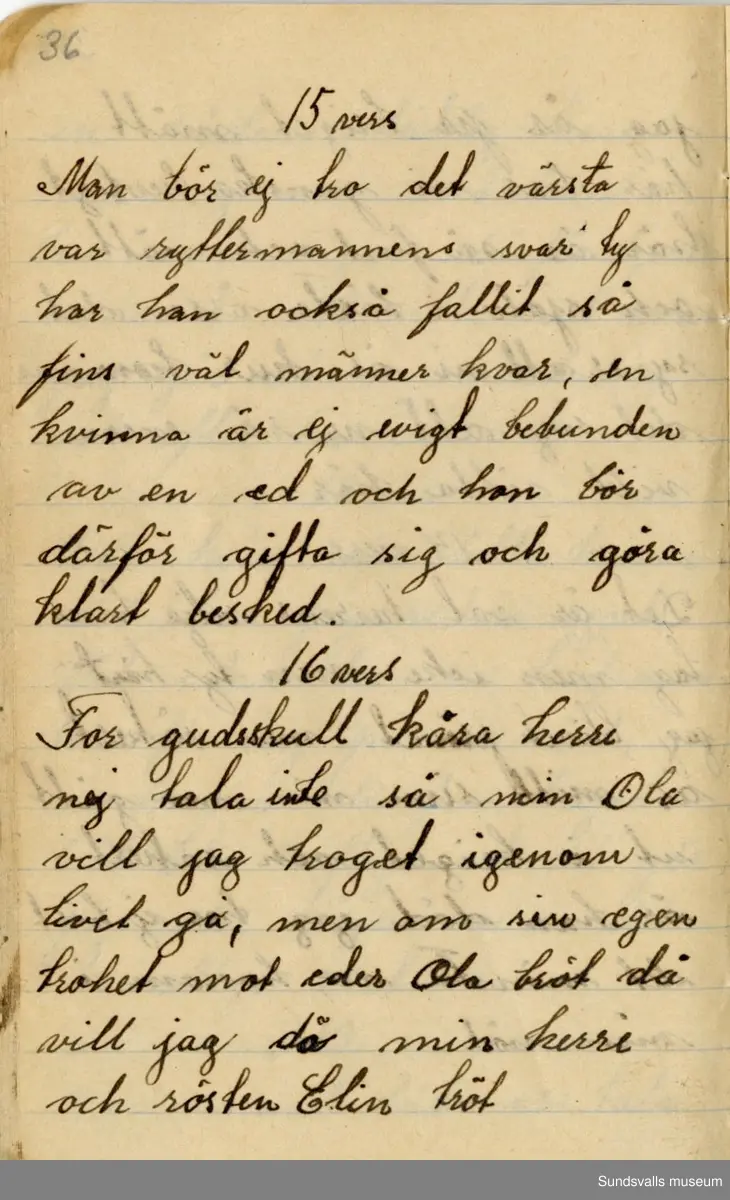 36
15 vers
Man bör ej tro det värsta
var ryttermannens svar ty
har han också fallit så
fins väl männer kvar, en
kvinna är ej evigt bebunden
av en ed och hon bör
därför gifta sig och göra
klart besked.
16 vers
For gudsskull kära herre
nej tala inte så min Ola
vill jag troget igenom
livet gå, men om sin egen
trohet mot eder Ola bröt då
vill jag dö min herre
och rösten Elin tröt
Sundsvalls museum